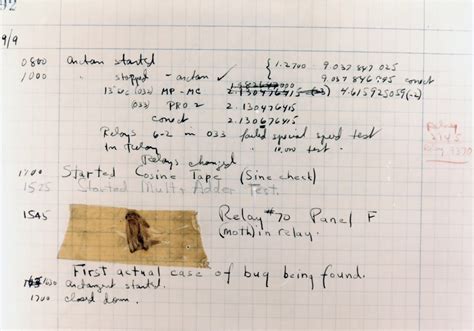 92
9/9
0800 Antan started { 1.2700 9.037 847 025
1000 " stopped - antan ✓ 9.037 846 995 correct
(032) MP - MC 2.130476415 (-3) 4.615925059 (-2)
(033) PRO 2 2.130476415
correct 2.130676415
Relays 6-2 in 033 failed special speed test
In relay " test.
Relays changed
Relay
2145
3370
1100 Started Cosine Tape (Sine check)
1525 Started Mult+Adder Test.
1545 Relay #70 Panel F
(moth) in relay.
First actual case of bug being found.
1630 antangent started.
1700 closed down.